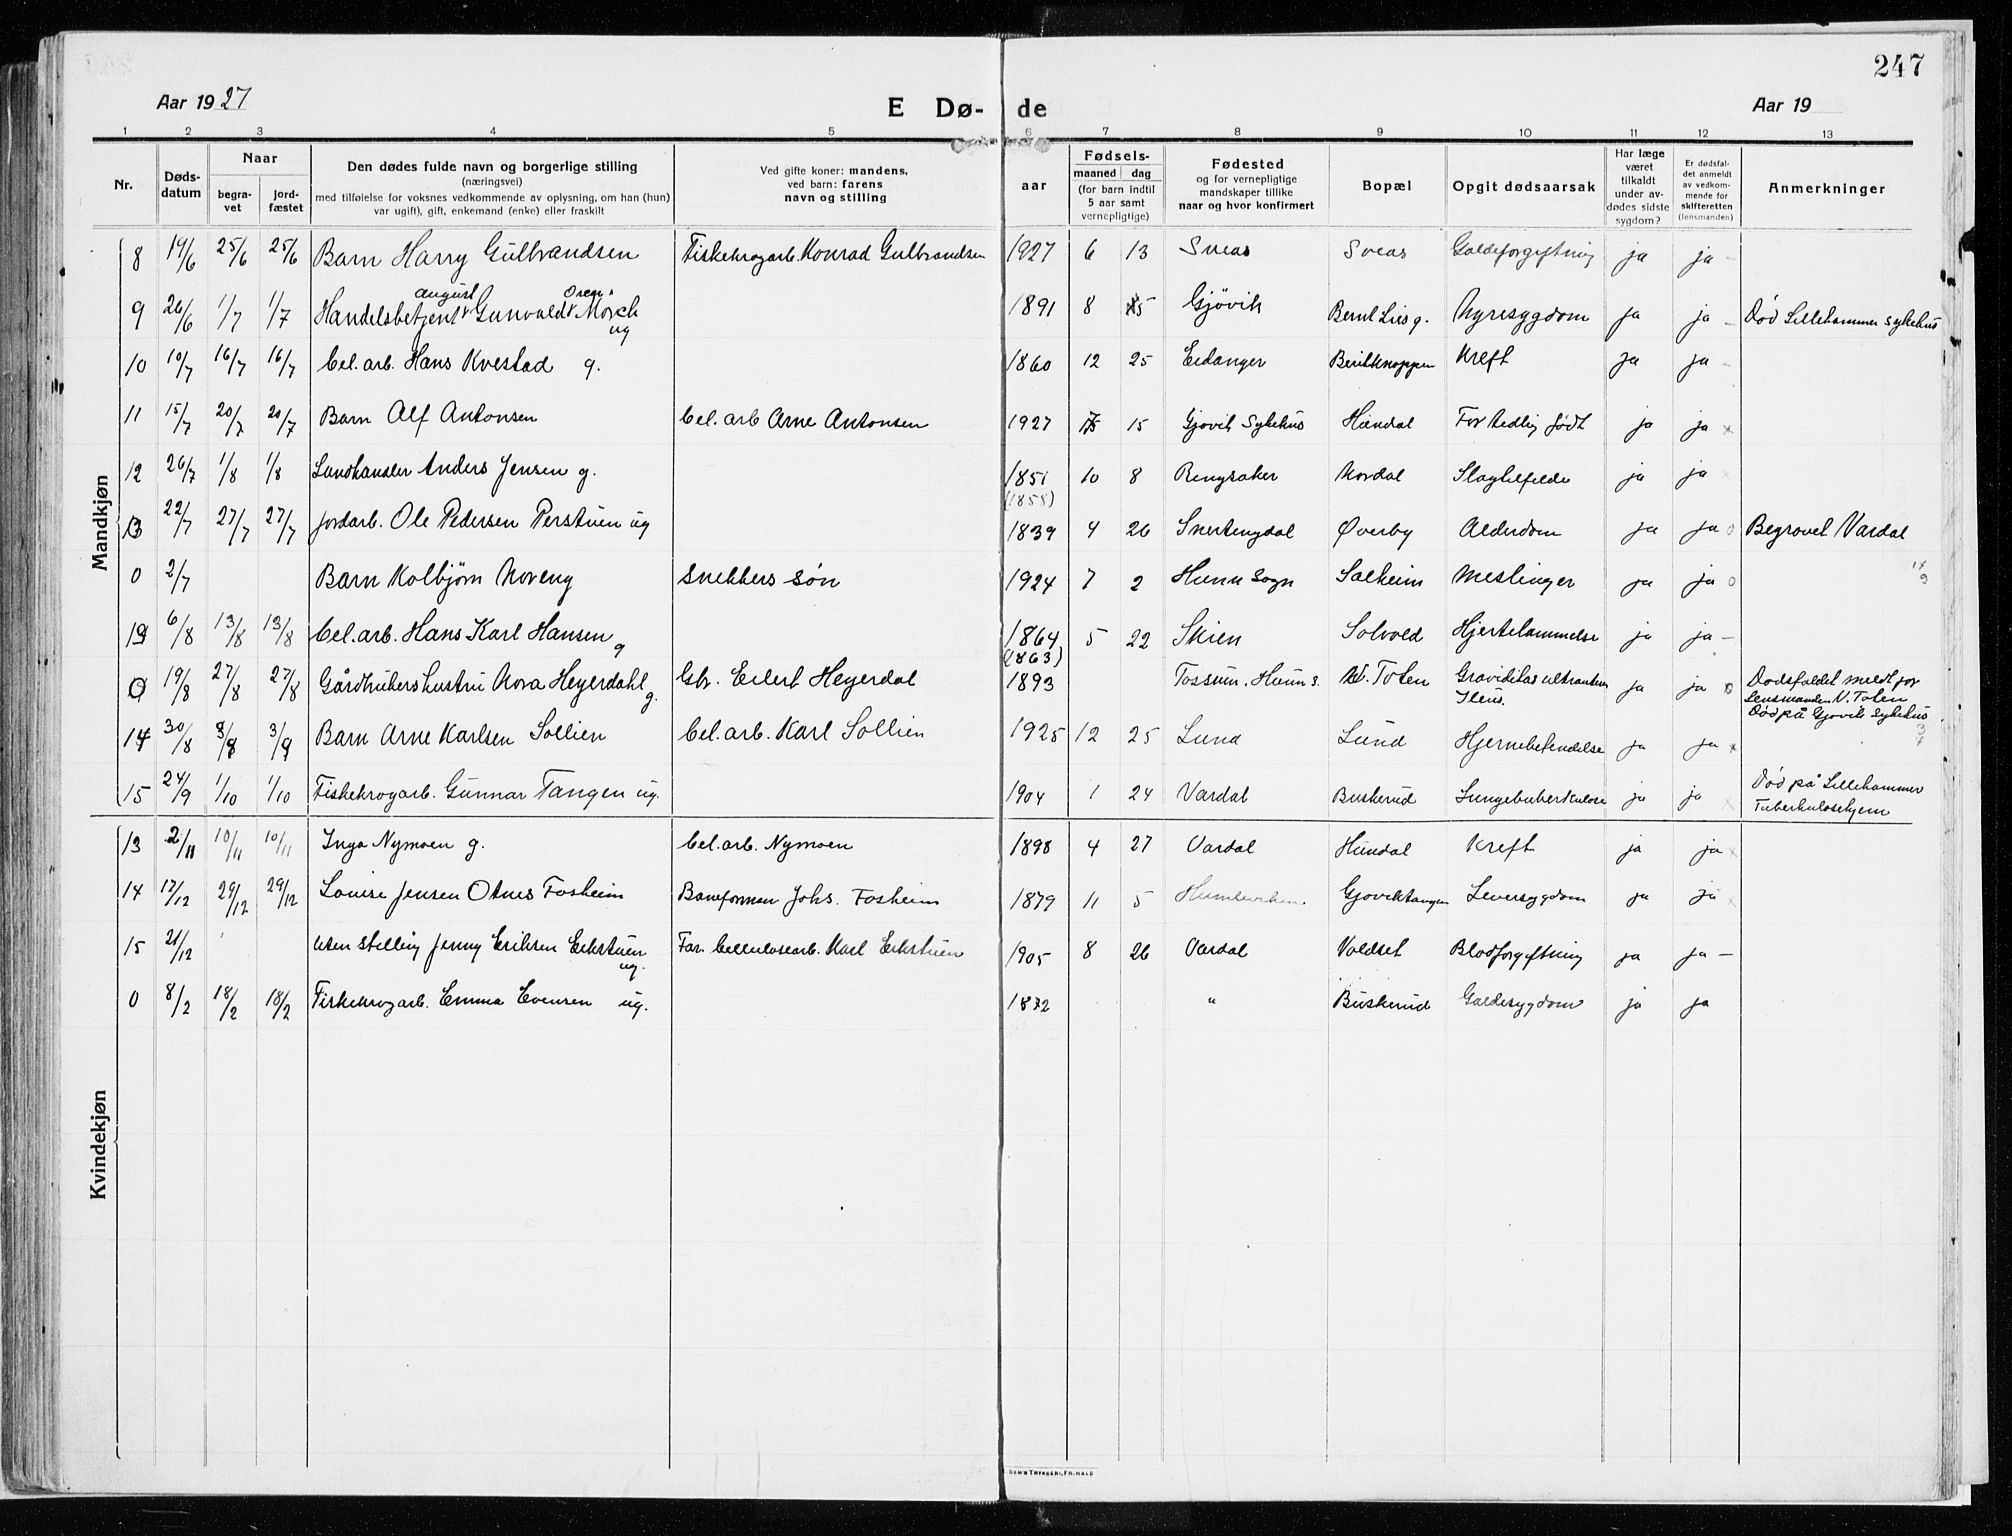 247
Aar 19 27 E Dø- de Aar 19
1 2 3 4 5 6 7 8 9 10 11 12 13
Nr. Døds-datum Naar begra-vet jord-fæstet Den dødes fulde navn og borgerlige stilling (næringsvei) med tilføielse for voksnes vedkommende av oplysning, om han (hun) var ugift), gift, enkemand (enke) eller fraskilt Ved gifte koner: mandens, ved barn: farens navn og stilling aar Fødsels- maaned dag (for barn indtil 5 aar samt vernepligtige) Fødested og for vernepligtige mandskaper tillike naar og hvor konfirmert Bopæl Opgit dødsaarsak Har læge været tilkaldt under av-dødes sidste sygdom? Er dødsfal-det anmeldt av vedkom-mende for skifteretten (lensmanden) Anmerkninger
Mandkjøn
8 19/6 25/6 25/6 Barn Harry Gulbrandsen Fiskekrogarb. Konrad Gulbrandsen 1927 6 13 Sveas Sveas Galdeforgiftning ja ja
9 26/6 1/7 1/7 Handelsbetjent August Gunvald Oren Mörch ug 1891 8 15 Gjövik Bernt Lies g. Nyresygdom ja ja Død Lillehammer sykehus
10 10/7 16/7 16/7 Cel. arb. Hans Kvestad g. 1860 12 25 Eidanger Kreft ja ja
11 15/7 20/7 20/7 Barn Alf Antonsen Cel. arb Arne Antonsen 1927 7 15 Gjovik Sykehus Hundal For tidlig født ja ja
12 26/7 1/8 1/8 Landhandler Anders Jensen g. 1851 (1858) 10 8 Ringsaker Nordal Slagtilfelde ja ja
13 22/7 27/7 27/7 Jordarb. Ole Pedersen Perstuen ug 1839 4 26 Snertingdal Øverby Alderdom ja ja Begravet Vardal
0 2/7 Barn Kolbjørn Noreng snekkers søn 1924 7 2 Hunn Sogn Solheim Meslinger ja ja
19 6/8 13/8 13/8 Cel. arb. Hans Karl Hansen g 1864 (1863) 5 22 Skien Solvold Hjertelammelse ja ja
0 19/8 27/8 27/8 Gårdbrukers hustru Nora Heyerdahl g. Gbr. Eilert Heyerdal 1893 Tossum, Hunn s. V. Toten Graviditas extrauterin Ileus. ja ja Dødsfaldet meldt for Lensmanden V. Toten Død på Gjovik Sykehus
14 30/8 3/9 3/9 Barn Arne Karlsen Sollien Cel. arb. Karl Sollien 1925 12 25 Lund Lund Hjernebetendelse ja ja
15 24/9 1/10 1/10 Fiskekrogarb. Gunnar Tangen ug. 1904 1 24 Vardal Buskerud Lungetuberkulose ja ja Død på Lillehammer Tuberkulosehjem
Kvindekjøn
13 2/11 10/11 10/11 Inga Nymoen g. Cel. arb. Nymoen 1898 4 27 Vardal Hundal Kreft ja ja
14 17/12 29/12 29/12 Louise Jensen Otnes Fosheim Baneforman Johs. Fosheim 1879 11 5 Gjoviktangen Leversygdom ja ja
15 21/12 Uten stilling Jenny Eriksen Eikstuen ug. Far Cellulosearb. Karl Eikstuen 1905 8 26 Vardal Voldset Blodforgiftning ja ja
0 8/2 18/2 18/2 Fiskekrogarb. Emma Evensen ug. 1872 " Buskerud Galdesygdom ja ja